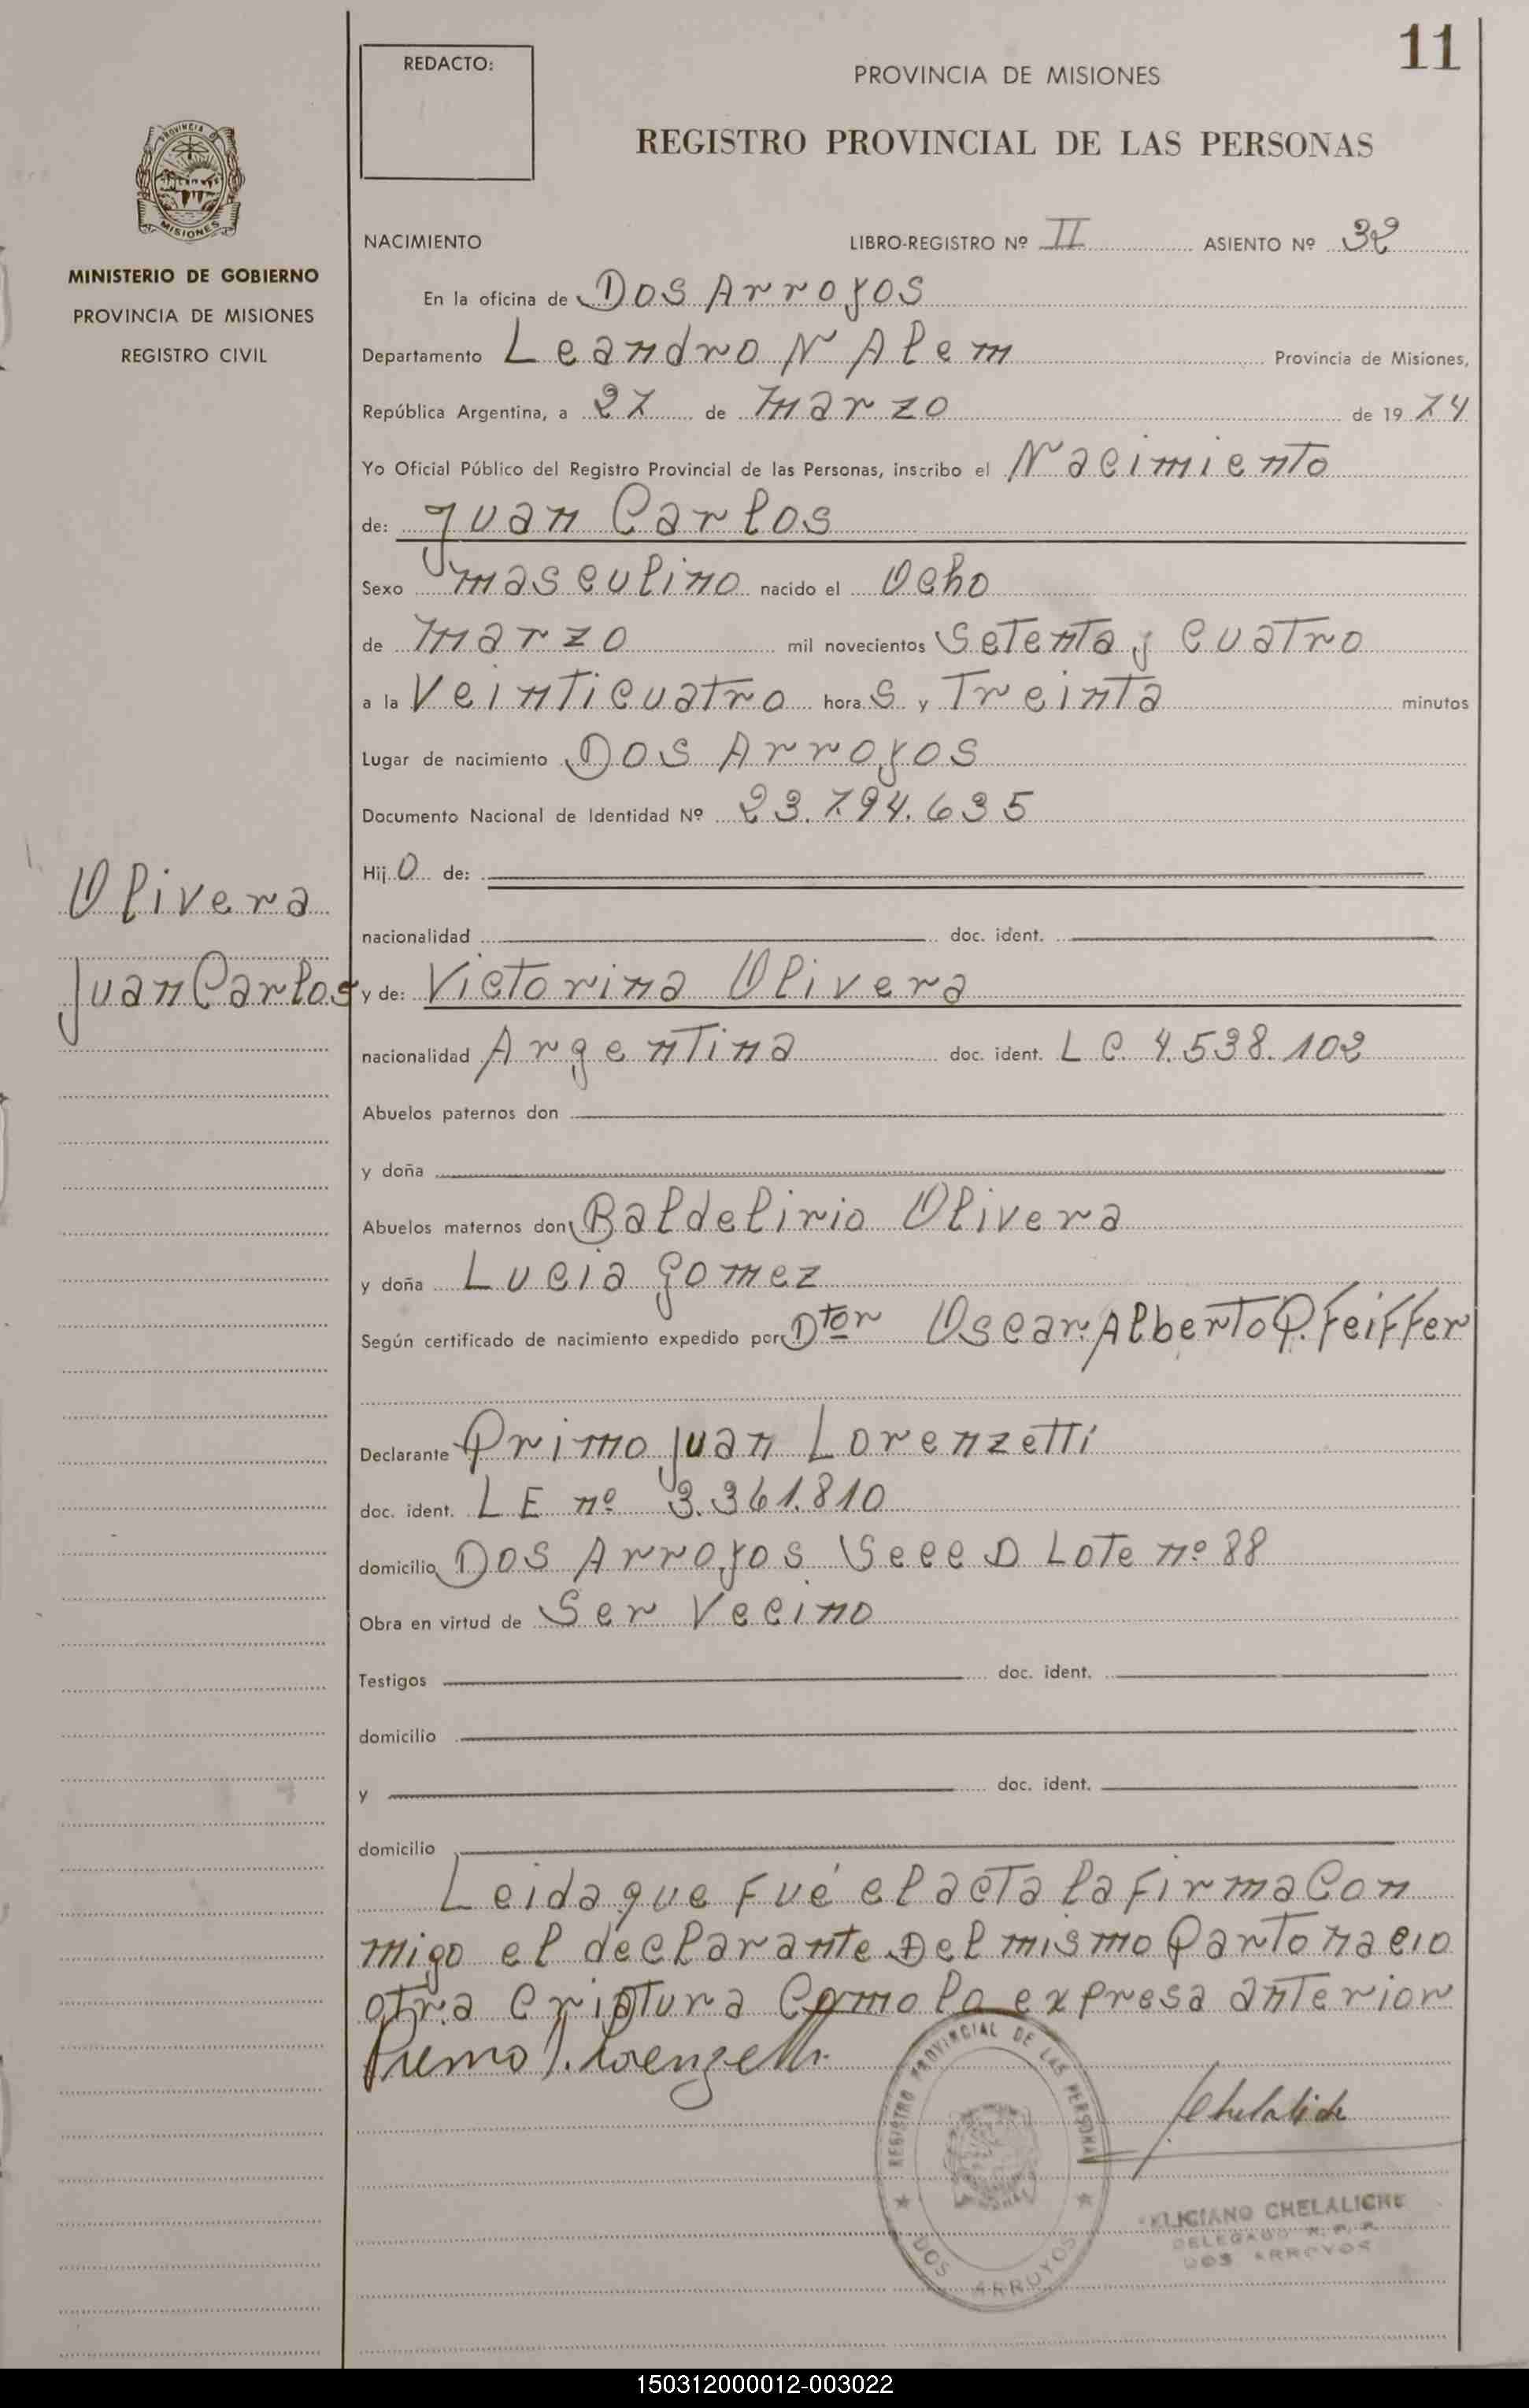 11
REDACTO:
PROVINCIA DE MISIONES
REGISTRO PROVINCIAL DE LAS PERSONAS
PROVINCIA DE
MISIONES
MINISTERIO DE GOBIERNO
PROVINCIA DE MISIONES
REGISTRO CIVIL
NACIMIENTO LIBRO-REGISTRO Nº II ASIENTO Nº 32
En la oficina de Dos Arroyos
Departamento Leandro N Alem Provincia de Misiones,
República Argentina, a 27 de Marzo de 1974
Yo Oficial Público del Registro Provincial de las Personas, inscribo el Nacimiento
de: Juan Carlos
Sexo masculino nacido el Ocho
de Marzo mil novecientos Setenta y Cuatro
a la Veinticuatro horaS y Treinta minutos
Lugar de nacimiento Dos Arroyos
Documento Nacional de Identidad Nº 23.794.635
HijO de:
nacionalidad doc. ident.
Olivera
Juan Carlos
y de: Victorina Olivera
nacionalidad Argentina doc. ident. L C. 4.538.102
Abuelos paternos don
y doña
Abuelos maternos don Baldelirio Olivera
y doña Lucia Gomez
Según certificado de nacimiento expedido por: Dtor Oscar Alberto Pfeiffer
Declarante Primo Juan Lorenzetti
doc. ident. L E nº 3.361.810
domicilio Dos Arroyos Secc D Lote nº 88
Obra en virtud de Ser Vecino
Testigos doc. ident.
domicilio
y doc. ident.
domicilio
Leida que fué el acta la firma Con
migo el declarante Del mismo Parto nacio
otra Criatura Como lo expresa anterior
Primo J. Lorenzetti
Chelaliche
REGISTRO PROVINCIAL DE LAS PERSONAS
DOS ARROYOS
FELICIANO CHELALICHE
DELEGADO R. P. P.
DOS ARROYOS
150312000012-003022